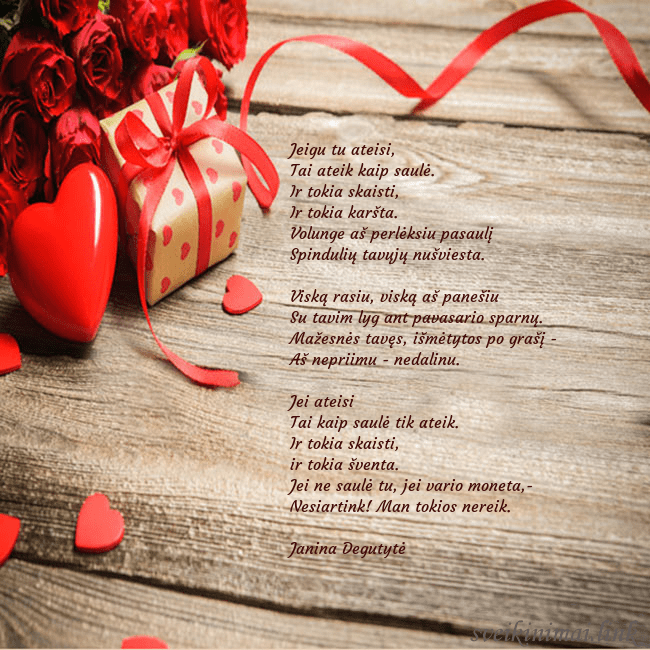 Jeigu tu ateisi,
Tai ateik kaip saulė.
Ir tokia skaisti,
Ir tokia karšta.
Volunge aš perlėksiu pasaulį
Spindulių tavųjų nušviesta.

Viską rasiu, viską aš panešiu
Su tavim lyg ant pavasario sparnų.
Mažesnės tavęs, išmėtytos po grašį -
Aš nepriimu - nedalinu.

Jei ateisi
Tai kaip saulė tik ateik.
Ir tokia skaisti,
ir tokia šventa.
Jei ne saulė tu, jei vario moneta,-
Nesiartink! Man tokios nereik.

Janina Degutytė